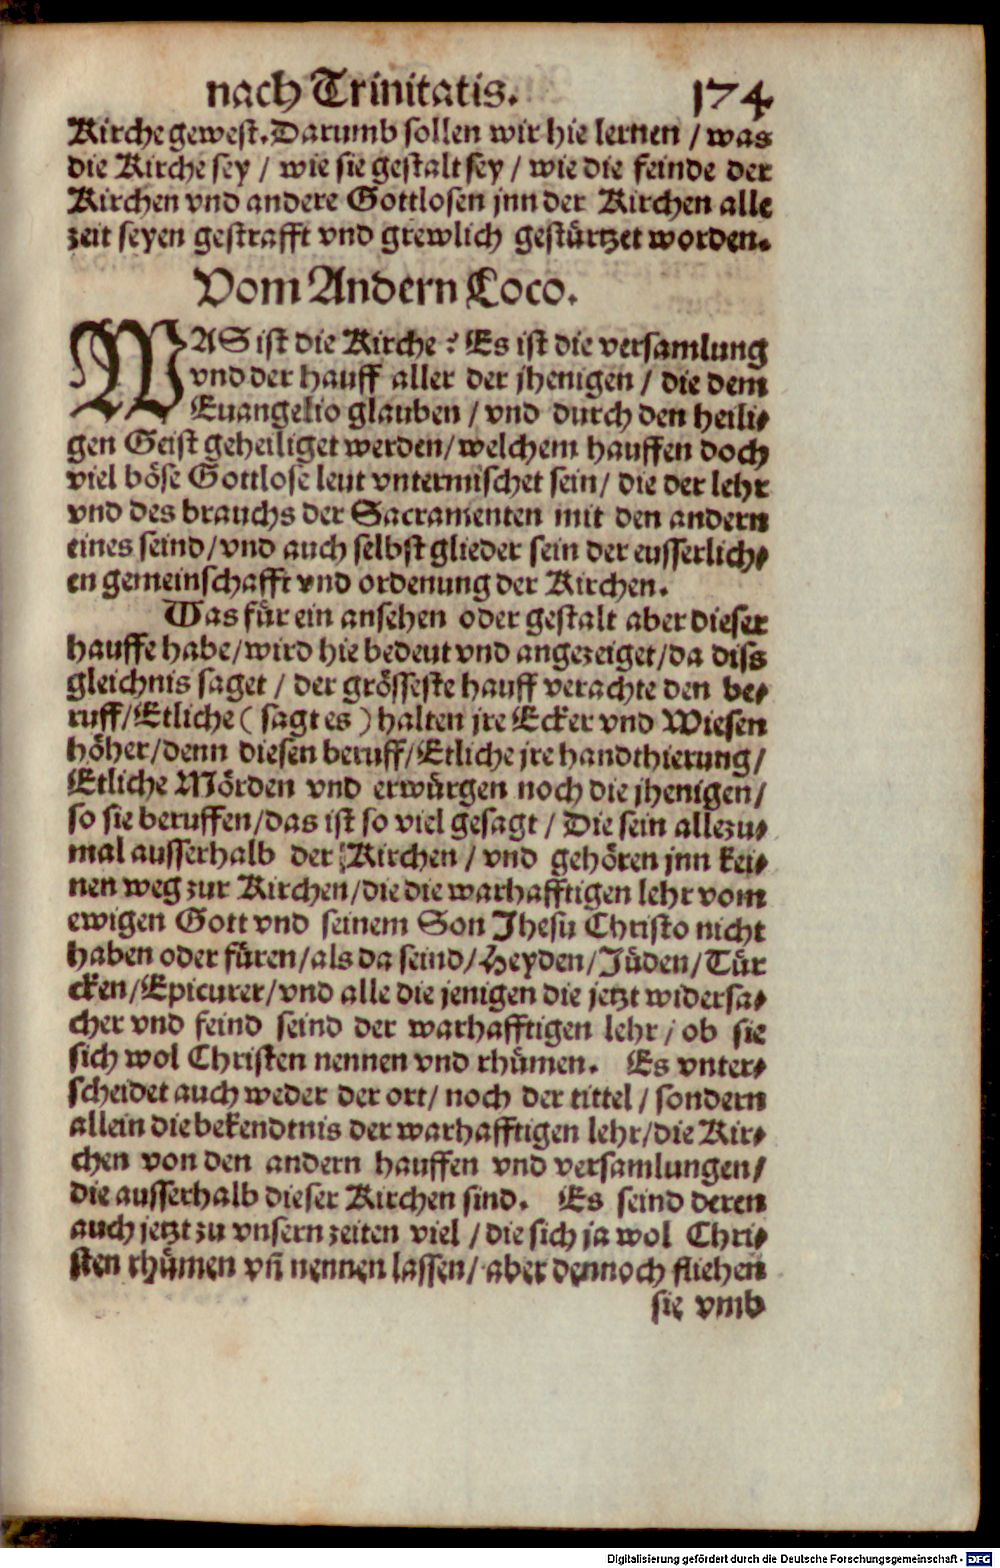 nach Trinitatis. 174
Kirche gewest. Darumb sollen wir hie lernen / was
die Kirche sey / wie sie gestalt sey / wie die feinde der
Kirchen vnd andere Gottlosen jnn der Kirchen alle
zeit seyen gestrafft vnd grewlich gestürtzet worden.
Vom Andern Loco.
WAS ist die Kirche? Es ist die versamlung
vnd der hauff aller der jhenigen / die dem
Euangelio glauben / vnd durch den heili⸗
gen Geist geheiliget werden/ welchem hauffen doch
viel böse Gottlose leut vntermischet sein/ die der lehr
vnd des brauchs der Sacramenten mit den andern
eines seind/ vnd auch selbst glieder sein der eusserlich⸗
en gemeinschafft vnd ordenung der Kirchen.
Was für ein ansehen oder gestalt aber dieser
hauffe habe/ wird hie bedeut vnd angezeiget/ da diss
gleichnis saget / der grösseste hauff verachte den be⸗
ruff/ Etliche ( sagt es ) halten jre Ecker vnd Wiesen
höher/ denn diesen beruff/ Etliche jre handthierung/
Etliche Mörden vnd erwürgen noch die jhenigen/
so sie beruffen/ das ist so viel gesagt / Die sein allezu⸗
mal ausserhalb der Kirchen / vnd gehören jnn kei⸗
nen weg zur Kirchen/ die die warhafftigen lehr vom
ewigen Gott vnd seinem Son Jhesu Christo nicht
haben oder füren/ als da seind/ Heyden/ Jüden/ Tür
cken/ Epicurer/ vnd alle die jenigen die jetzt widersa⸗
cher vnd feind seind der warhafftigen lehr / ob sie
sich wol Christen nennen vnd rhümen. Es vnter⸗
scheidet auch weder der ort/ noch der tittel / sondern
allein die bekendtnis der warhafftigen lehr/ die Kir⸗
chen von den andern hauffen vnd versamlungen/
die ausserhalb dieser Kirchen sind. Es seind deren
auch jetzt zu vnsern zeiten viel / die sich ja wol Chri⸗
sten rhümen vn̄ nennen lassen/ aber dennoch fliehen
sie vmb
Digitalisierung gefördert durch die Deutsche Forschungsgemeinschaft - DFG